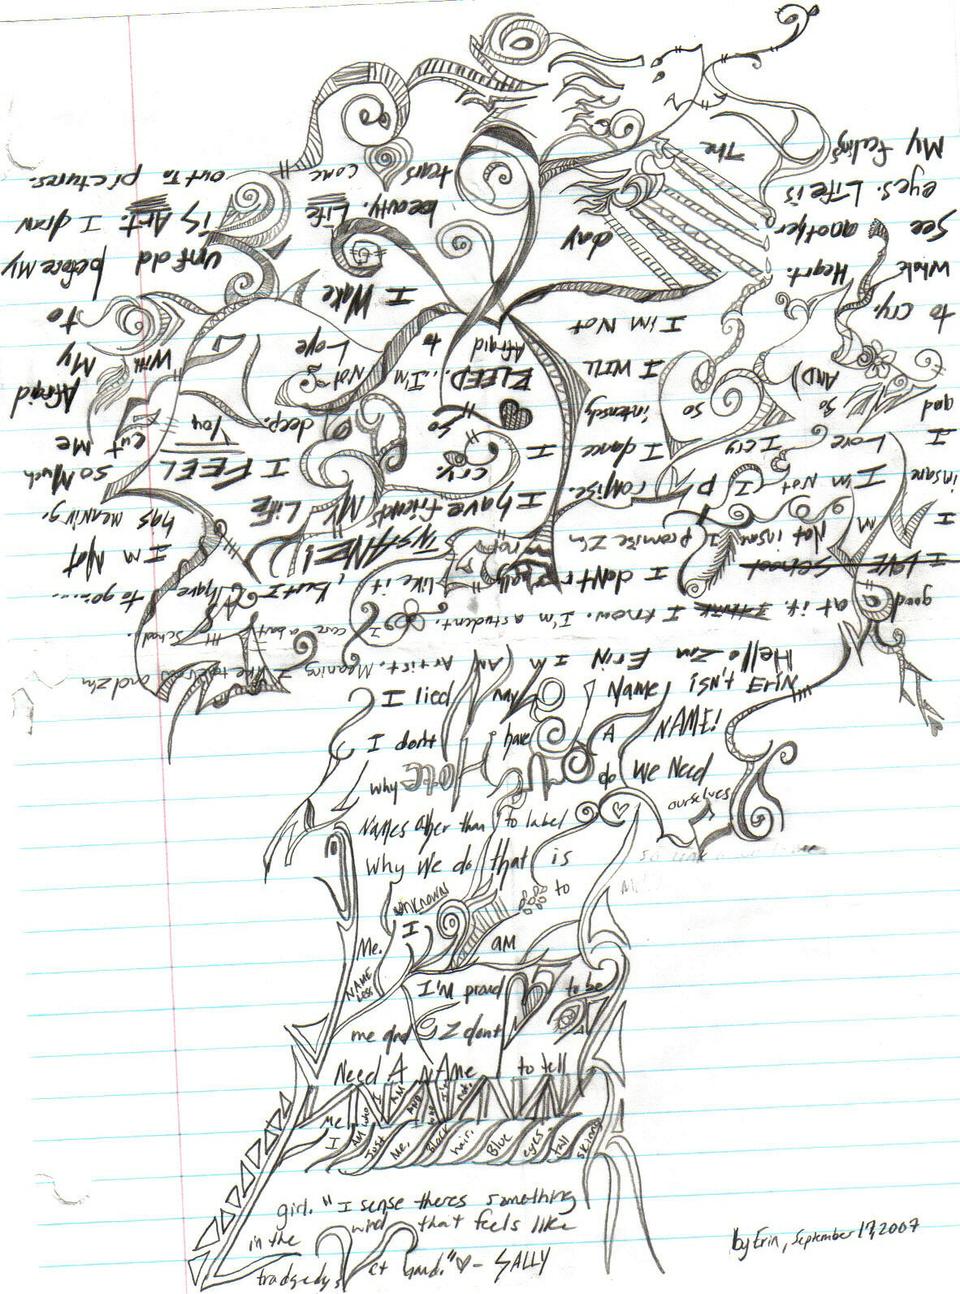 Hello I'm Erin I'm (AN Artist. Meaning I like to draw and I'm
good at it. I think I know. I'm a student. I
care about the School.
I LOVE School I don't really like it, but I have to go....
I M Not insane I promise I'm not INSANE!
I'm Not
insane I'm Not (I promise. I have friends MY LIFE has meaning.
I Love I cry I dance I cry. I FEEL so Much
and so (AND so intensely so deep. You cut Me
I WILL BLEED...I'm Not Afraid
to cry. I'm Not Afraid to Love With My
whole Heart. I Wake to
See another day unfold before My
eyes. Life is beauty. Life is Art. I draw
My feelings The tears come out in pictures.
I lied my Name isn't Erin
I don't have A NAME!
why do We Need
Names other than to label ourselves
Why We do that is
unknown to
Me. I am
NAME
LESS
I'M proud to be
me and I don't
Need A NAme to tell
me who I AM AND who I'm Not.
I AM Just Me, Black hair, Blue eyes tall skinny
girl. "I sense there's something
in the wind that feels like
tradgedys at hand." - SALLY
by Erin, September 17, 2007